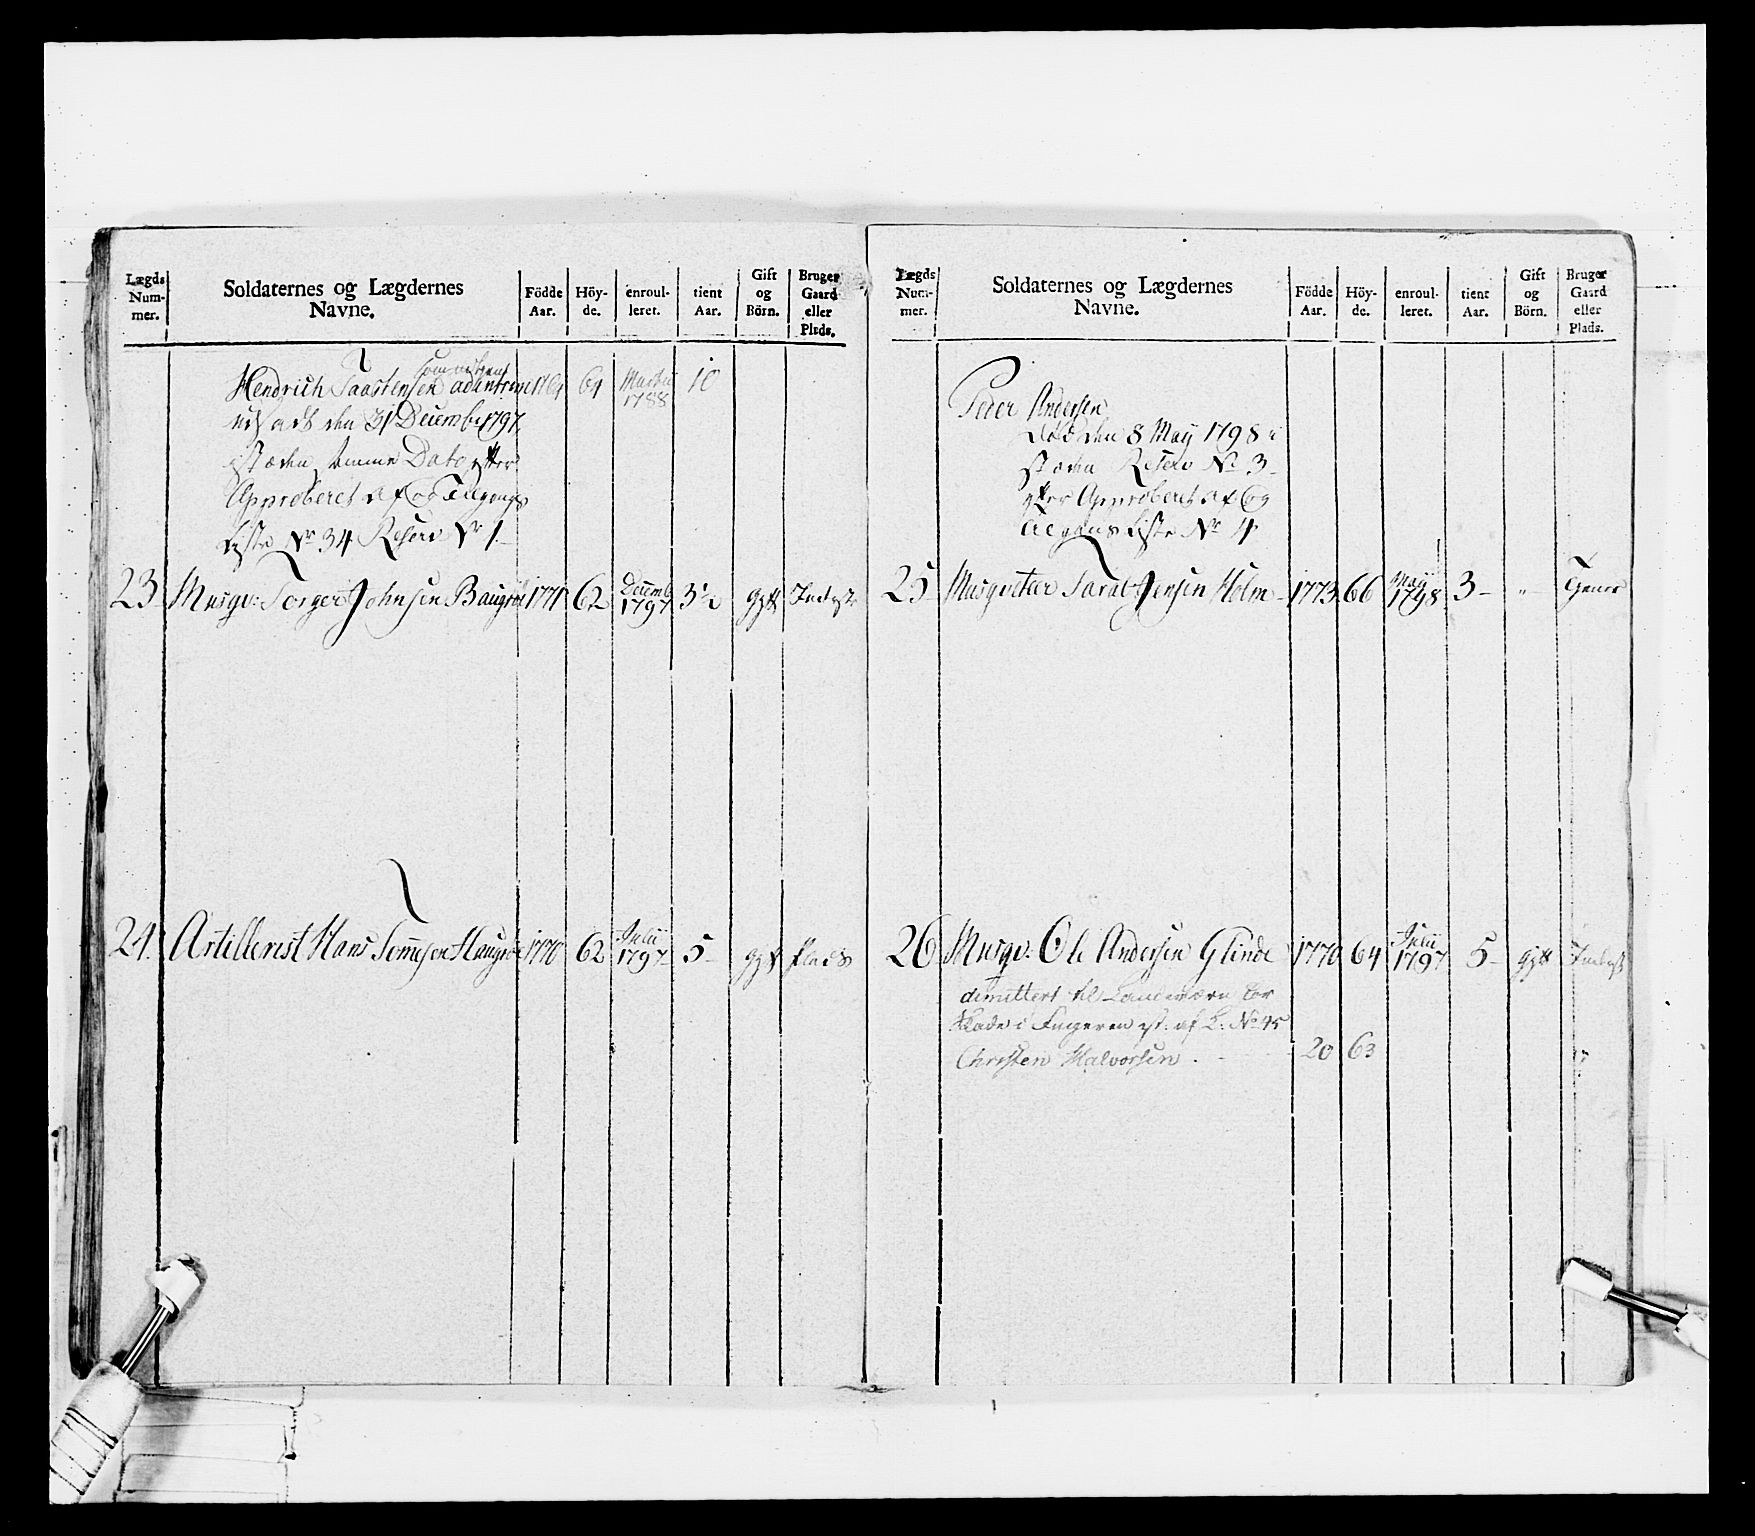 Lægds Num- mer.
Soldaternes og Lægdernes Navne.
Födde Aar.
Höy- de.
enroul- leret.
tient Aar.
Gift og Börn.
Bruger Gaard eller Plads.
Hendrich Taastensen 64 1788 10
den 31 Decembr 1797
Dato efter
Approberet af og Tilgangs
Liste No 34 Reserv No 1
23 Musqv: Torger Johnsen Baugrøe 1771 62 Decemb 1797 3½ gift Inderst
24. Artillerist Hans Tommesen Haugrøe 1770 62 Julii 1797 5 gift Plads
Lægds Num- mer.
Soldaternes og Lægdernes Navne.
Födde Aar.
Höy- de.
enroul- leret.
tient Aar.
Gift og Börn.
Bruger Gaard eller Plads.
Peder Andersen
død den 8 May 1798 i
stæden Reserv No 3
efter Approberet af Og
Tilgangs Liste No 4
25 Musqveteer Taral Jensen Holm 1773 66 May 1798 3 – „ –
26 Musqv: Ole Andersen Glinde 1770 64 Julii 1797 5 – gift Inderst
dimittert til Landeværn for
Skade i Fingeren ist: af L: No 45
Christen Halvorsen . 20 63